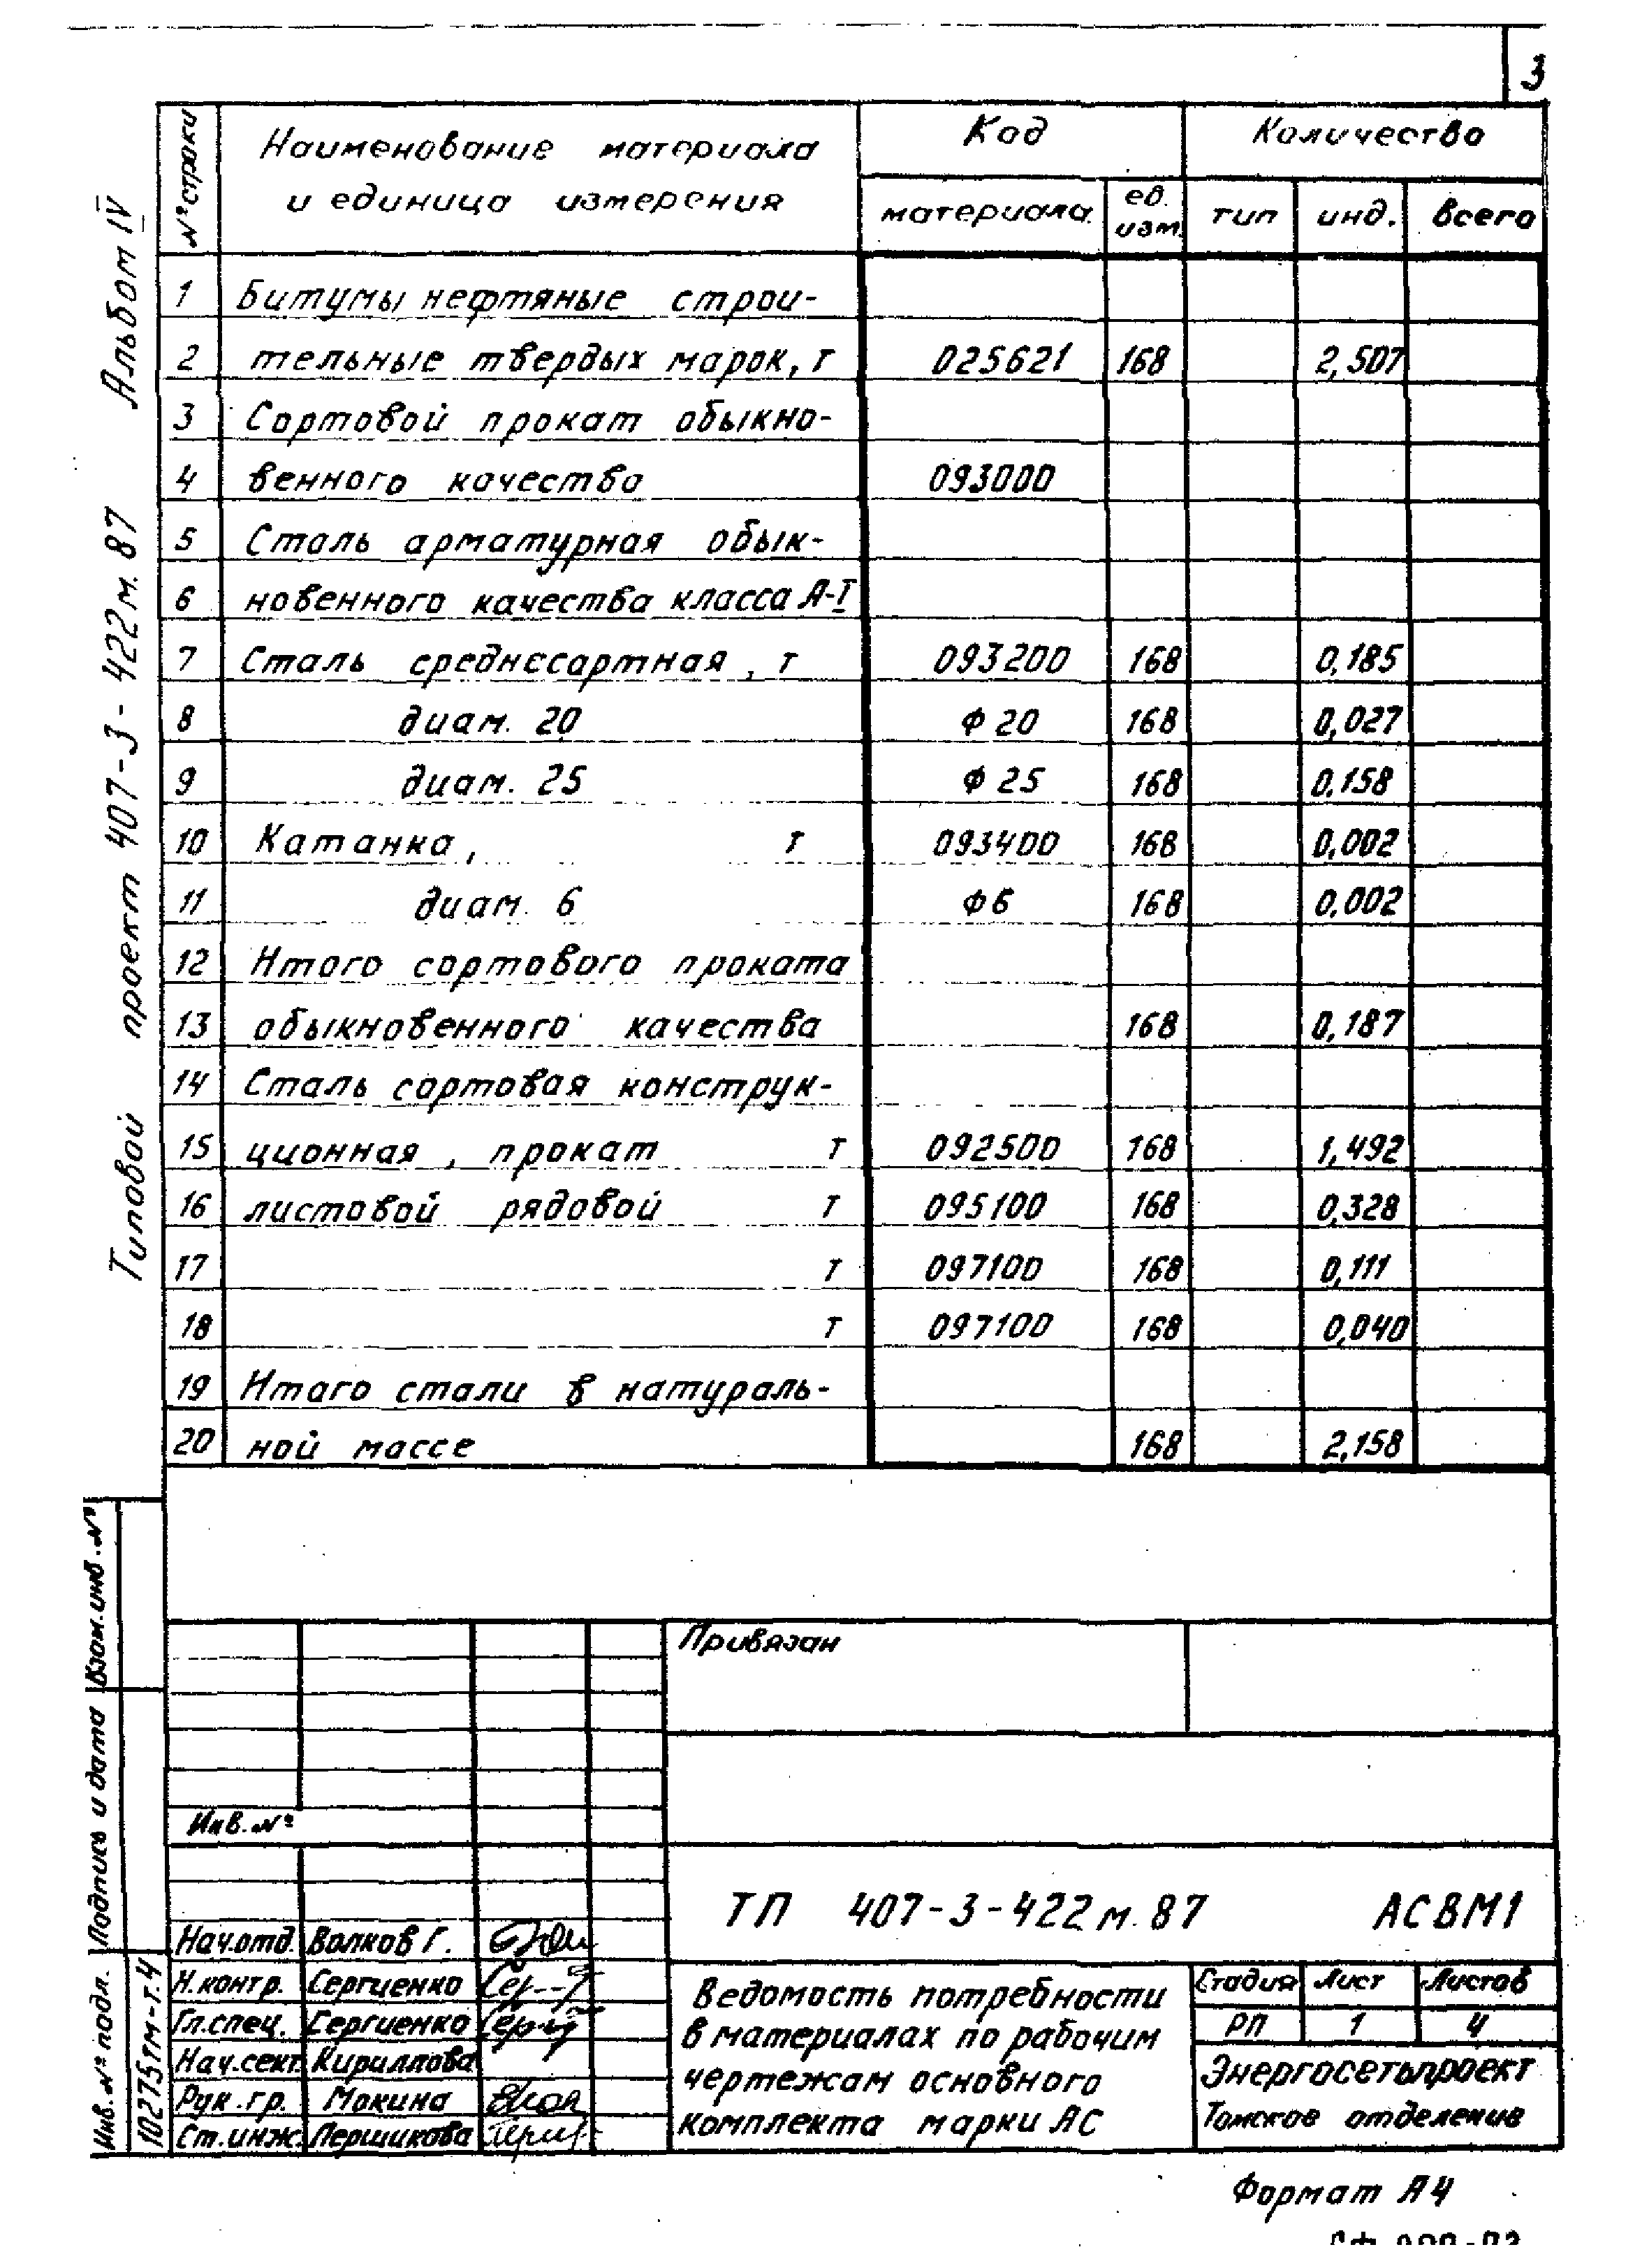 3
№ строки
Наименование материала
и единица измерения
Код
Количество
материала
ед.
изм.
тип
инд.
всего
1 Битумы нефтяные строи-
2 тельные твердых марок, т 025621 168 2,507
3 Сортовой прокат обыкно-
4 венного качества 093000
5 Сталь арматурная обык-
6 новенного качества класса А-I
7 Сталь среднесортная, т 093200 168 0,185
8 диам. 20 Ф 20 168 0,027
9 диам. 25 Ф 25 168 0,158
10 Катанка, т 093400 168 0,002
11 диам. 6 Ф6 168 0,002
12 Итого сортового проката
13 обыкновенного качества 168 0,187
14 Сталь сортовая конструк-
15 ционная, прокат т 092500 168 1,492
16 листовой рядовой т 095100 168 0,328
17 т 097100 168 0,111
18 т 097100 168 0,040
19 Итого стали в натураль-
20 ной массе 168 2,158
Типовой проект 407-3-422м.87 Альбом IV
Взам.инв.№
Подпись и дата
Инв.№ подл.
10275тм-т.4
Привязан
Инв.№
ТП 407-3-422м.87 АСВМ1
Нач.отд. Волков Г.
Н.контр. Сергиенко
Гл.спец. Сергиенко
Нач.сект. Кириллова
Рук.гр. Мокина
Ст.инж. Першикова
Ведомость потребности
в материалах по рабочим
чертежам основного
комплекта марки АС
Стадия Лист Листов
РП 1 4
Энергосетьпроект
Томское отделение
Формат А4